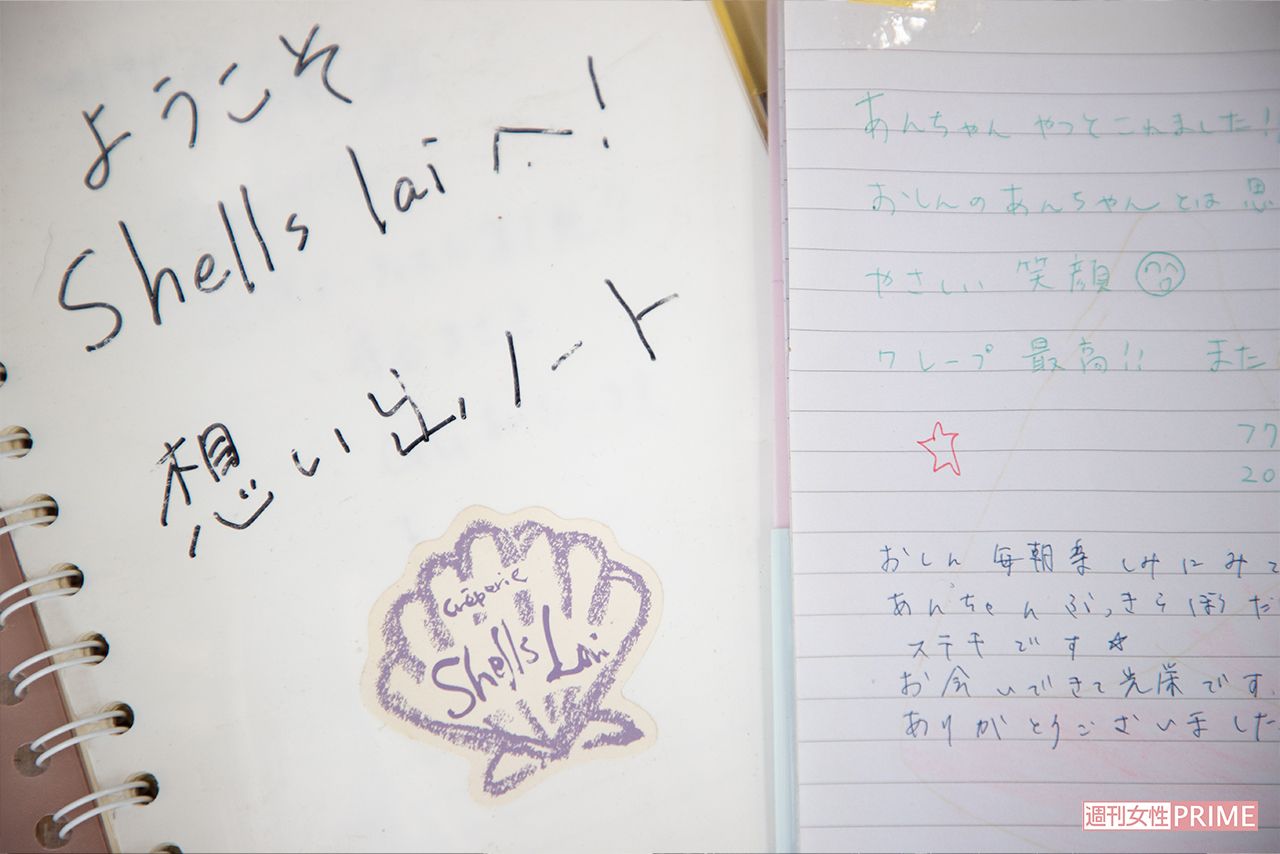 ようこそ
Shells laiへ!
想い出ノート
Crêperie
Shells Lai
あんちゃん やっとこれました!
おしんのあんちゃんとは思
やさしい 笑顔
クレープ 最高!! また
20
おしん 毎朝楽しみにみて
あんちゃんぶっきらぼうだ
ステキです☆
お会いできて光栄です.
ありがとうございました
週刊女性PRIME